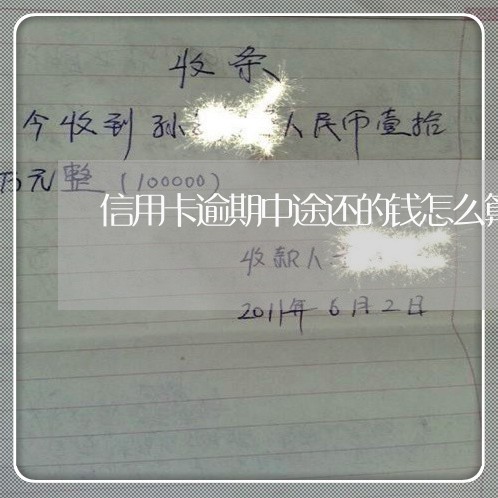 收条
今收到孙 人民币壹拾
万元整(100000)
信用卡逾期中途还的钱怎么算
收款人
2011年6月2日